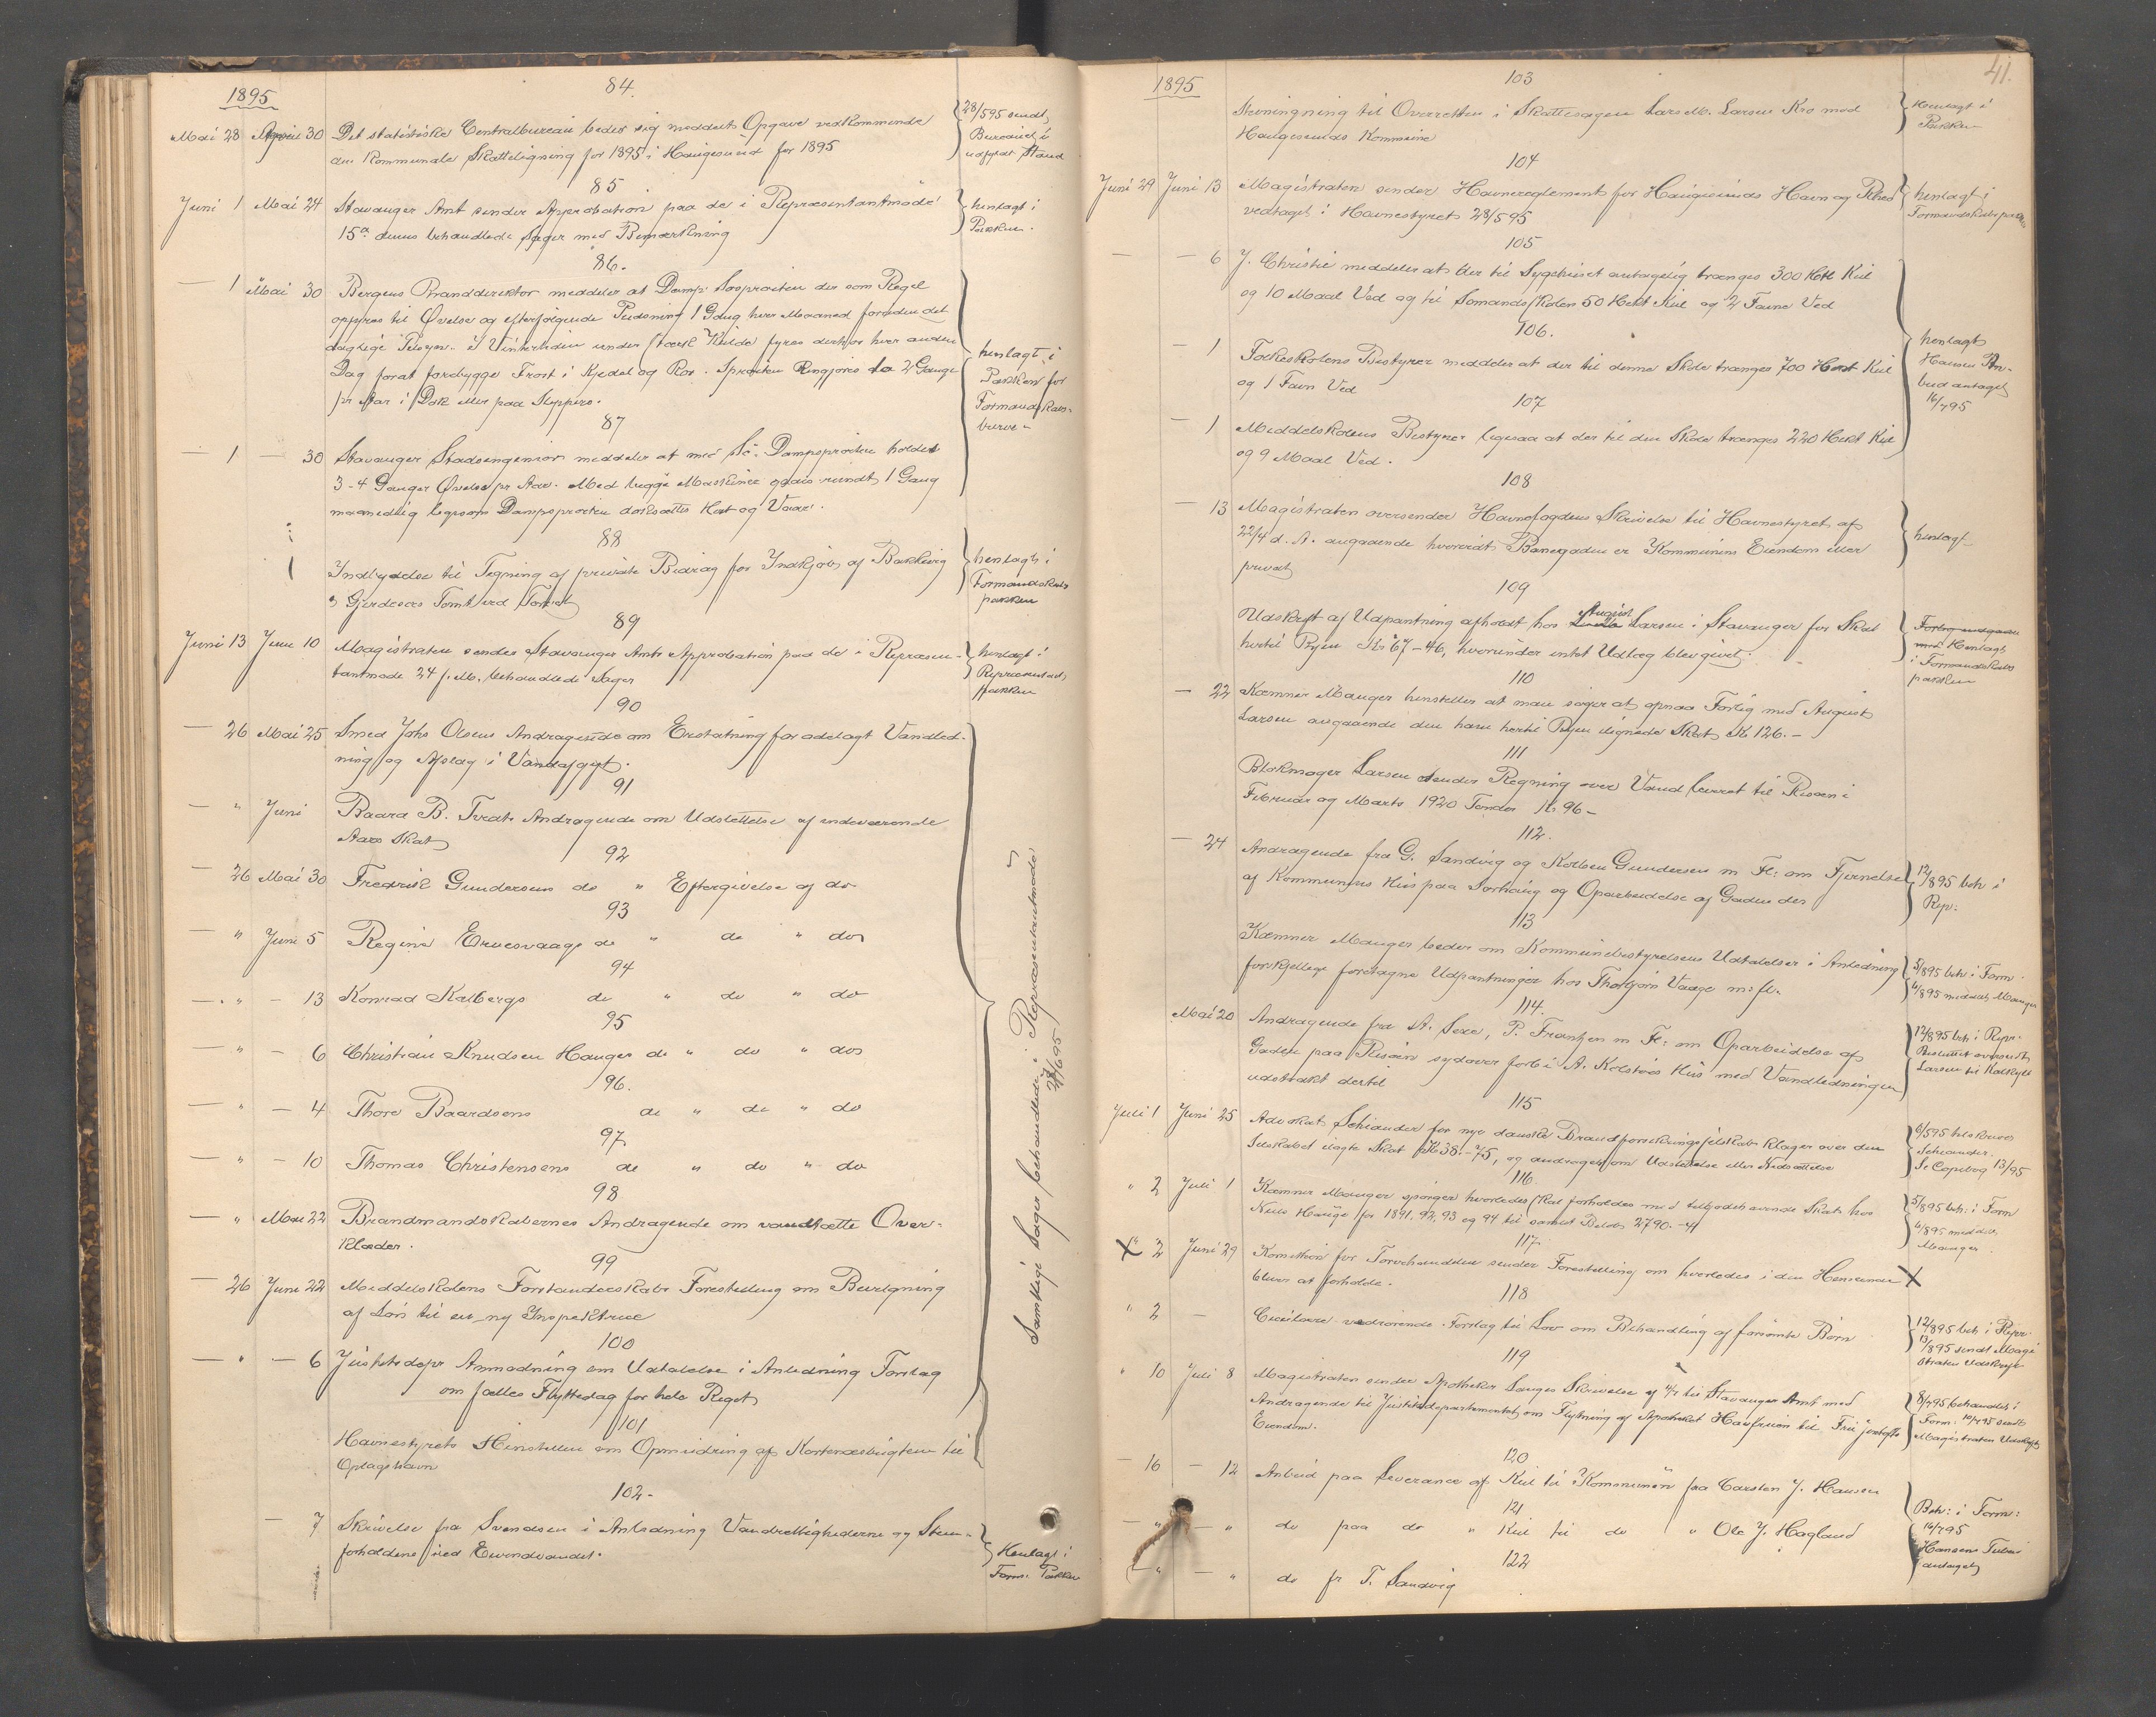 1895
84.
Mai 28 April 30 Det statistiske Centralbureau beder sig meddelt Opgave vedkommende
den Kommunale Skatteligning for 1895 i Haugesund for 1895
28/5 95 sendt
Bureauet i
udfyldt Stand
85
Juni 1 Mai 24 Stavanger Amt sender Approbation paa de i Repræsentantmøde
15de dennes behandlede Sager med Bemærkning
henlagt i
Pakken.
86.
— 1 Mai 30 Bergens Branddirektør meddeler at Damp Søsprøiten der som Regel
opfyres til Øvelse og efterfølgende Pudsning 1 Gang hver Maaned foruden det
daglige Tilsyn. I Vintertiden under stærk Kulde fyres derhos hver anden
Dag forat forebygge Frost i Kjedel og Rør. Sprøiten Ringjøres 2 Gange
pr Aar i Dok eller paa Slippen.
henlagt i
Pakken for
Formandskabs-
87
— 1 — 30 Stavanger Stadsingeniør meddeler at med Dampsprøiten holdes
3-4 Ganger Øvelse pr Aar. Med begge Maskiner gaaes rundt 1 Gang
maanedlig ligesom Dampsprøiten doksættes Høst og Vaar.
88
1 Indbydelse til Tegning af private Bidrag for Indkjøb af Bakkevig
& Gjerdesens Tomt ved Torvet
henlagt i
Formandskabs
pakken
89
Juni 13 Juni 10 Magistraten sender Stavanger Amts Approbation paa de i Repræsen-
tantmøde 24 f. M. behandlede Sager
henlagt i
Repræsentant
pakken
90
— 26 Mai 25 Smed Johs Olsens Andragende om Erstatning for ødelagt Vandled-
ning og Afslag i Vandafgift.
91
— " Juni Baard B. Tveits Andragende om Udsættelse af indeværende
Aars Skat
92
— 26 Mai 30 Fredrik Gundersens do " Eftergivelse af do
93
— " Juni 5 Regine do " do " do
94
— " — 13 Konrad Kalbergs do " do " do
95
— " — 6 Christian Knudsen Hauges do " do " do
96.
— " — 4 Thore Baardsens do " do " do
97
— " — 10 Thomas Christensens do " do " do
98
— " Mai 22 Brandmandskabernes Andragende om vandtætte Over-
klæder.
99
— 26 Juni 22 Middelskolens Forstanderskabs Forestilling om Bevilgning
af Løn til en ny Inspektrice
100
— " — 6 Justitsdepts Anmodning om Udtalelse i Anledning Forslag
om fælles Flyttedag for hele Riget
101
Havnestyrets Henstillen om Opmudring af Kortenæsbugten til
Oplagshavn
Samtlige Sager behandlede i Repræsentantmøde
28/6 95
102.
— 7 Skrivelse fra Svendsen i Anledning Vandrettighederne og
forholdene ved Eivindsvandet.
Henlagt i
Form. Pakken
41.
1895
103
Stevningning til Overretten i Skattesagen Lars M. Larsen Kro mod
Haugesunds Kommune
Henlagt i
Pakken
104
Juni 29 Juni 13 Magistraten sender Havnereglement for Haugesunds Havn og Rhed
vedtaget i Havnestyret 28/5 95
henlagt i
Formandskabspakken
105
— — 6 J. Christie meddeler at der til Sygehuset antagelig trænges 300 Hekt Kul
og 10 Maal Ved og til Sømandsskolen 50 Hekt Kul og 2 Favne Ved
106.
— 1 Folkeskolens Bestyrer meddeler at der til denne Skole trænges 700 Hekt Kul
og 1 Favn Ved
107
— 1 Middelskolens Bestyrer ligesaa at der til den Skole trænges 220 Hekt Kul
og 9 Maal Ved.
henlagt
Hansens An-
bud antaget
16/7 95
108
— 13 Magistraten oversender Havnefogdens Skrivelse til Havnestyret af
22/4 d. A. angaaende hvorvidt er Kommunens Eiendom eller
privat
henlagt
109
Udskrift af Udpantning afholdt hos August Larsen i Stavanger for Skat
hertil Byen Kr 67-46, hvorunder intet Udlæg blev givet.
Henlagt
i Formandskabs
pakken
110
— 22 Kæmner Mauger henstiller at man søger at opnaa Forlig med August
Larsen angaaende den ham hertil Byen ilignede Skat Kr 126.-
111
Blokmager Larsen sender Regning over Vand leveret til Risøen i
Februar og Marts 1920 Tønder Kr 96-
112.
— 24 Andragende fra G. Sandvig og Kolben Gundersen m Fl: om Fjernelse
af Kommunens Hus paa Sørhaug og Oparbeidelse af Gaden der
12/8 95 beh i
Rep.
113
Kæmner Mauger beder om Kommunebestyrelsens Udtalelser i Anledning
forskjellige foretagne Udpantninger hos Thorbjørn Vaage m: fl.
5/8 95 beh i Form.
6/8 95 meddelt Mauger
114.
Mai 20 Andragende fra A. Sexe, P. Frantzen m Fl: om Oparbeidelse af
Gaden paa Risøen sydover forbi A. Kolstøes Hus med Vandledningen
udstrakt dertil
12/8 95 beh i Repr.
115
Juli 1 Juni 25 Advokat Schiander for nye danske Brandforsikringsselskab klager over den
Selskabet ilagte Skat Kr 38.-75, og andrager om Udsættelse eller Nedsættelse
Schiander.
Se Copibog 13/95
116.
" 2 Juli 1 Kæmner Mauger spørger hvorledes skal forholdes med tilgodehavende Skat hos
Niels Hauge for 1891. 92, 93 og 94 til samlet Beløb 2790.-
5/8 95 beh. i Form
6/8 95 meddelt
Mauger.
117.
X " 2 Juni 29 Komiteen for Torvehandelen sender Forestilling om hvorledes i den Henseende X
bliver at forholde.
118
" 2 — Cirkulære vedrørende Forslag til Lov om Behandling af forsømte Børn
12/8 95 beh i Repr.
13/8 95 sendt Magi
straten Udskrift
119
" 10 Juli 8 Magistraten sender Apotheker Sanges Skrivelse af til Stavanger Amt med
Andragende til Justitsdepartementet om Flytning af Apotheket Havfruen til
Eiendom.
8/7 95 behandlet i
Form: 10/7 95 sendt
Magistraten Udskrift
120
— 16 — 12 Anbud paa Leverance af Kul til Kommunen fra Carsten J. Hansen
121
— " — " do paa do " Kul til do " Ole J. Hagland
122
— " — " do fr T. Sandvig
Beh: i Form:
16/7 95
Hansens
antaget